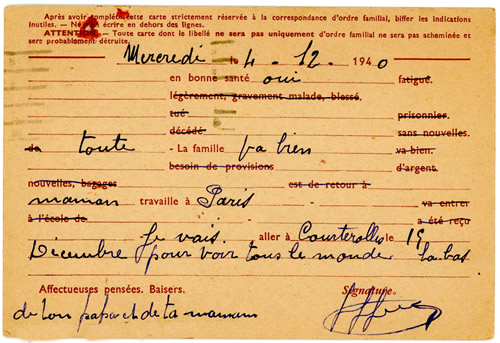 Après avoir complété cette carte strictement réservée à la correspondance d'ordre familial, biffer les indications
inutiles. — Ne rien écrire en dehors des lignes.
ATTENTION. — Toute carte dont le libellé ne sera pas uniquement d'ordre familial ne sera pas acheminée et
sera probablement détruite.
Mercredi le 4-12-1940
en bonne santé oui fatigué.
légèrement, gravement malade, blessé.
tué prisonnier.
décédé sans nouvelles.
toute - La famille va bien va bien.
besoin de provisions d'argent.
nouvelles, bagages est de retour à
maman travaille à Paris va entrer
à l'école de a été reçu
Je vais. aller à Courterolles le 19
Décembre pour voir tous le monde la bas
Affectueuses pensées. Baisers. Signature.
de ton papa et de ta maman